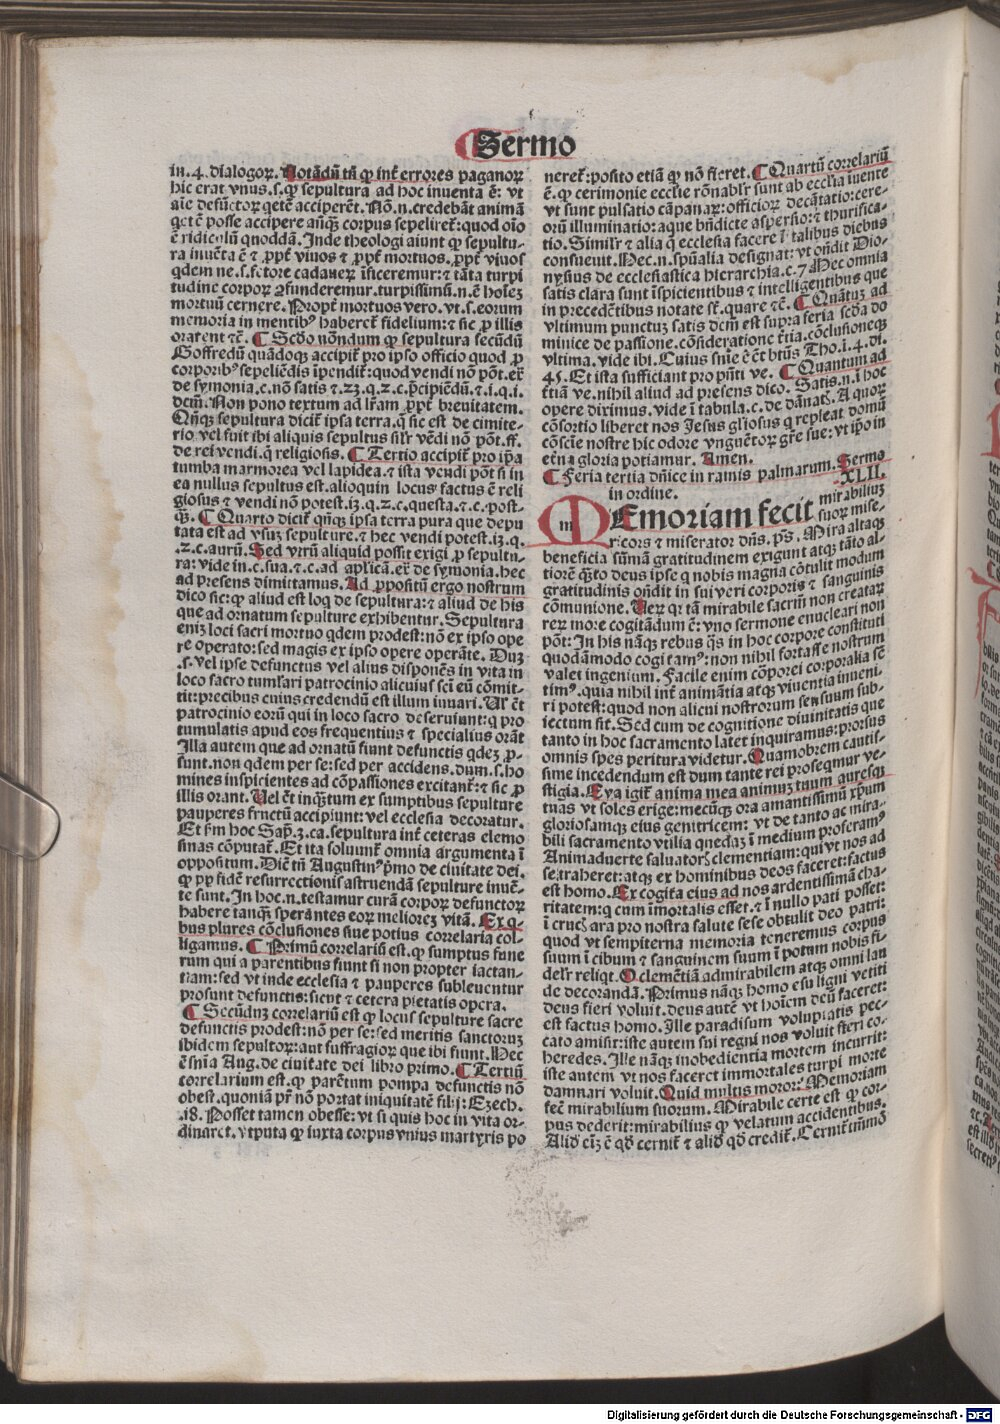 Sermo
in.4. dialogoꝝ. Notādū tñ ꝙ int̄ errores paganoꝝ
hic erat vnus.s.ꝙ sepultura ad hoc inuenta ē: vt
aīe defūctoꝝ q̇etē acciperēt. Nō.n.credebāt animā
q̇etē posse accipere añq̄ꝫ corpus sepeliret̄:quod oīo
ē ridiculū quoddā. Inde theologi aiunt ꝙ sepultu-
ra inuēta ē ⁊ ꝓpt̄ viuos ⁊ ꝓpt̄ mortuos. ꝓpt̄ viuos
q̇dem ne.s.fetore cadaueꝝ īficeremur:⁊ tāta turpi
tudine corpoꝝ ꝯfunderemur.turpissimū.n.ē hoīeꝫ
mortuū cernere. Propt̄ mortuos vero. vt.s.eorum
memoria in mentibꝰ haberet̄ fidelium:⁊ sic ꝓ illis
oraretur ⁊c̄. ¶ Scd̄o nōndum ꝙ sepultura secūdū
Goffredū quādoq̄ꝫ accipit̄ pro ipso officio quod ꝓ
corporibꝰ sepeliēdis īpendit̄:quod vendi nō pōt.ex̄
de symonia.c.nō satis ⁊.23.q.2.c.p̄cipiēdū.⁊.i.q.i.
dcm̄. Non pono textum ad lr̄am ꝓpt̄ breuitatem.
Qñq̄ꝫ sepultura dicit̄ ipsa terra.q̄ sic est de cimite-
rio vel fuit ibi aliquis sepultus silr̄ vēdi nō pōt.ff.
de rei vendi.q̄ religiosis. ¶ Tertio accipit̄ pro ip̄a
tumba marmorea vel lapidea.⁊ ista vendi pōt si in
ea nullus sepultus est.alioquin locus factus ē reli
giosus ⁊ vendi nō potest.13.q.2.c.questa.⁊.c.post-
q̄ꝫ. ¶ Quarto dicit̄ qñq̄ꝫ ipsa terra pura que depu
tata est ad vsuꝫ sepulture.⁊ hec vendi potest.13.q.
.2.c.aurū. Sed vtrū aliquid possit exigi ꝓ sepultu-
ra: vide in.c.sua.⁊.c.ad aplicā.ex̄ de symonia.hec
ad presens dimittamus. Ad ꝓpositū ergo nostrum
dico sic:ꝙ aliud est loq̇ de sepultura:⁊ aliud de his
que ad ornatum sepulture exhibentur. Sepultura
eniꝫ loci sacri mortuo q̇dem prodest:nō ex ipso ope
re operato:sed magis ex ipso opere operāte. Duꝫ
.s.vel ipse defunctus vel alius disponēs in vita in
loco sacro tumlari patrocinio alicuius sc̄i eū cōmit-
tit:precibus cuius credendū est illum iuuari. Ut ēt
patrocinio eorū qui in loco sacro deseruiunt:q̇ pro
tumulatis apud eos frequentius ⁊ specialius orāt
Illa autem que ad ornatū fiunt defunctis q̇deꝫ ꝓ-
sunt.non q̇dem per se:sed per accidens.dum.s.ho
mines inspicientes ad cōpassiones excitant̄:⁊ sic ꝓ
illis orant. Vel ēt inq̄ꝫtum ex sumptibus sepulture
pauperes fructū accipiunt:vel ecclesia decoratur.
Et ẜm hoc Sap̄.3.ca.sepultura int̄ ceteras elemo
sinas cōputat̄. Et ita soluunt̄ omnia argumenta ī
oppositum. Dic̄ tñ Augustinꝰ p̄mo de ciuitate dei.
ꝙ ꝓꝑ fidē resurrectionis astruendā sepulture inuē-
te sunt. In hoc.n.testamur curā corpoꝝ defunctoꝝ
habere tanq̄ꝫ sperātes eoꝝ melioreꝫ vitā. Ex q̇-
bus plures cōclusiones siue potius correlaria col-
ligamus. ¶ Primū correlariū est.ꝙ sumptus fune
rum qui a parentibus fiunt si non propter iactan-
tiam:sed vt inde ecclesia ⁊ pauperes subleuentur
prosunt defunctis:sicut ⁊ cetera pietatis opera.
¶ Secūduꝫ correlariū est ꝙ locus sepulture sacre
defunctis prodest:nō per se:sed meritis sanctoruꝫ
ibidem sepultoꝝ:aut suffragioꝝ que ibi fiunt. Hec
ē snīa Aug.de ciuitate dei libro primo. ¶ Tertiū
correlarium est.ꝙ parētum pompa defunctis nō
obest.quoniā pr̄ nō portat iniquitatē filij:Ezech.
18. Posset tamen obesse:vt si quis hoc in vita or-
dinaret.vtputa ꝙ iuxta corpus vnius martyris po
neret̄:posito etiā ꝙ nō fieret. ¶ Quartū correlariū
ē.ꝙ cerimonie ecclīe rōnabl̓r sunt ab ecclīa īuente
vt sunt pulsatio cāpanaꝝ:officioꝝ decātatio:cere-
orū illuminatio:aque bn̄dicte aspersio:⁊ thurifica-
tio. Simil̓r ⁊ alia q̄ ecclesia facere ī talibus diebus
consueuit. Hec.n.spūalia designat:vt oñdit Dio-
nysius de ecclesiastica hierarchia.c.7 Hec omnia
satis clara sunt īspicientibus ⁊ intelligentibus que
in precedētibus notate sūt.quare ⁊c̄. ¶ Quātuꝫ ad
vltimum punctuꝫ satis dcm̄ est supra feria scd̄a do
minice de passione.cōsideratione t̄tia.cōclusioneqꝫ
vltima.vide ibi. Cuius snīe ē ēt btūs Tho.i.4.di.
45. Et ista sufficiant pro pn̄ti ve. ¶ Quantum ad
t̄tiā ve.nihil aliud ad presens dico. Satis.n.ī hoc
opere diximus.vide ī tabula.c.de dānatꝭ. A quoꝝ
cōsortio liberet nos Jesus gl̓iosus q̇ repleat domū
cōscīe nostre hic odore vnguētoꝝ gr̄e sue:vt ip̄o in
et̄na gloria potiamur. Amen.
¶ Feria tertia dn̄ice in ramis palmarum. Sermo
in ordine. XLII.
MEmoriam fecit mirabiliuꝫ
suoꝝ mise-
ricors ⁊ miserator dn̄s. pſ̄. Mira altaqꝫ
beneficia sūmā gratitudinem exigunt atqꝫ tāto al-
tiorē q̄ꝫto deus ipse q̇ nobis magna cōtulit modum
gratitudinis oñdit in sui veri corporis ⁊ sanguinis
cōmunione. Ueꝝ qꝛ tā mirabile sacrm̄ non creataꝝ
reꝝ more cogitādum ē: vno sermone enucleari non
pōt: In his nāqꝫ rebus q̄s in hoc corpore constituti
quodāmodo cogitamꝰ:non nihil fortasse nostrum
valet ingenium. Facile enim cōporei corporalia sē
timꝰ.quia nihil int̄ animātia atqꝫ viuentia inueni-
ri potest:quod non alicui nostrorum sensuum sub-
iectum sit. Sed cum de cognitione diuinitatis que
tanto in hoc sacramento latet inquiramus:prorsus
omnis spes peritura videtur. Quamobrem cautis-
sime incedendum est dum tante rei prosequur ve-
stigia. Eya igit̄ anima mea animuꝫ tuum auresqꝫ
tuas vt soles erige:mecūqꝫ ora amantissimū xp̄um
gloriosamqꝫ eius genitricem: vt de tanto ac mira-
bili sacramento vtilia quedaꝫ ī medium proferamꝰ
Animaduerte saluatorꝭ clementiam:qui vt nos ad
se;traheret:atqꝫ ex hominibus deos faceret:factus
est homo. Ex cogita eius ad nos ardentissimā cha-
ritatem:q̇ cum īmortalis esset.⁊ ī nullo pati posset:
ī crucꝭ ara pro nostra salute sese obtulit deo patri:
quod vt sempiterna memoria teneremus corpus
suum ī cibum ⁊ sanguinem suum ī potum nobis fi-
del̓r reliqt. O clemētiā admirabilem atqꝫ omni lau
de decorandā. Primus nāqꝫ homo esu ligni vetiti
deus fieri voluit.deus autē vt hoīem deū faceret:
est factus homo. Ille paradisum voluptatis pec-
cato amisit:iste autem sui regni nos voluit fieri co-
heredes. Ille nāqꝫ inobedientia mortem incurrit:
iste autem vt nos faceret immortales turpi morte
damnari voluit. Quid multus moror: Memoriam
fec̄ mirabilium suorum. Mirabile certe est ꝙ cor-
pus dederit:mirabilius ꝙ velatum accidentibus.
Alid̄ eiꝫ ē qd̄ cernit̄ ⁊ alid̄ qd̄ credit̄. Cernit̄ īmmō
Digitalisierung gefördert durch die Deutsche Forschungsgemeinschaft - DFG